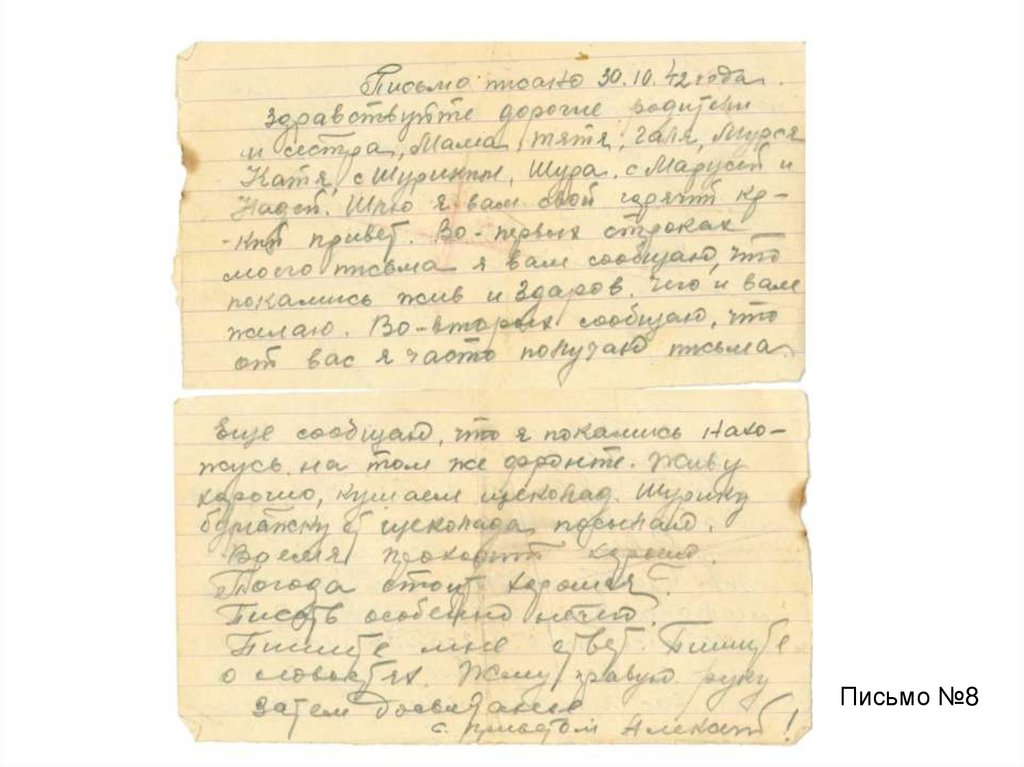 Письмо писано 30.10.42 года.
Здравствуйте дорогие родители
и сестра, Мама, тятя, Галя, Муся
Катя, с Шуриком, Шура. с Марусей и
Надей. Шлю я вам свой горячий кр-
-кий привет. Во-первых строках
моего письма я вам сообщаю, что
покамись жив и здаров. Чего и вам
желаю. Во-вторых сообщаю, что
от вас я часто получаю письма.
Еще сообщаю, что я покамись нахо-
жусь на том же фронте. Живу
хорошо, кушаем щеколад. Шурику
бумажку от щеколада посылаю.
Время проходит хорошо.
Погода стоит хорошая.
Писать особенно нечего.
Пишите мне ответ. Пишите
о новостях. Жму правую руку
Затем досвидание
с приветом
Письмо №8